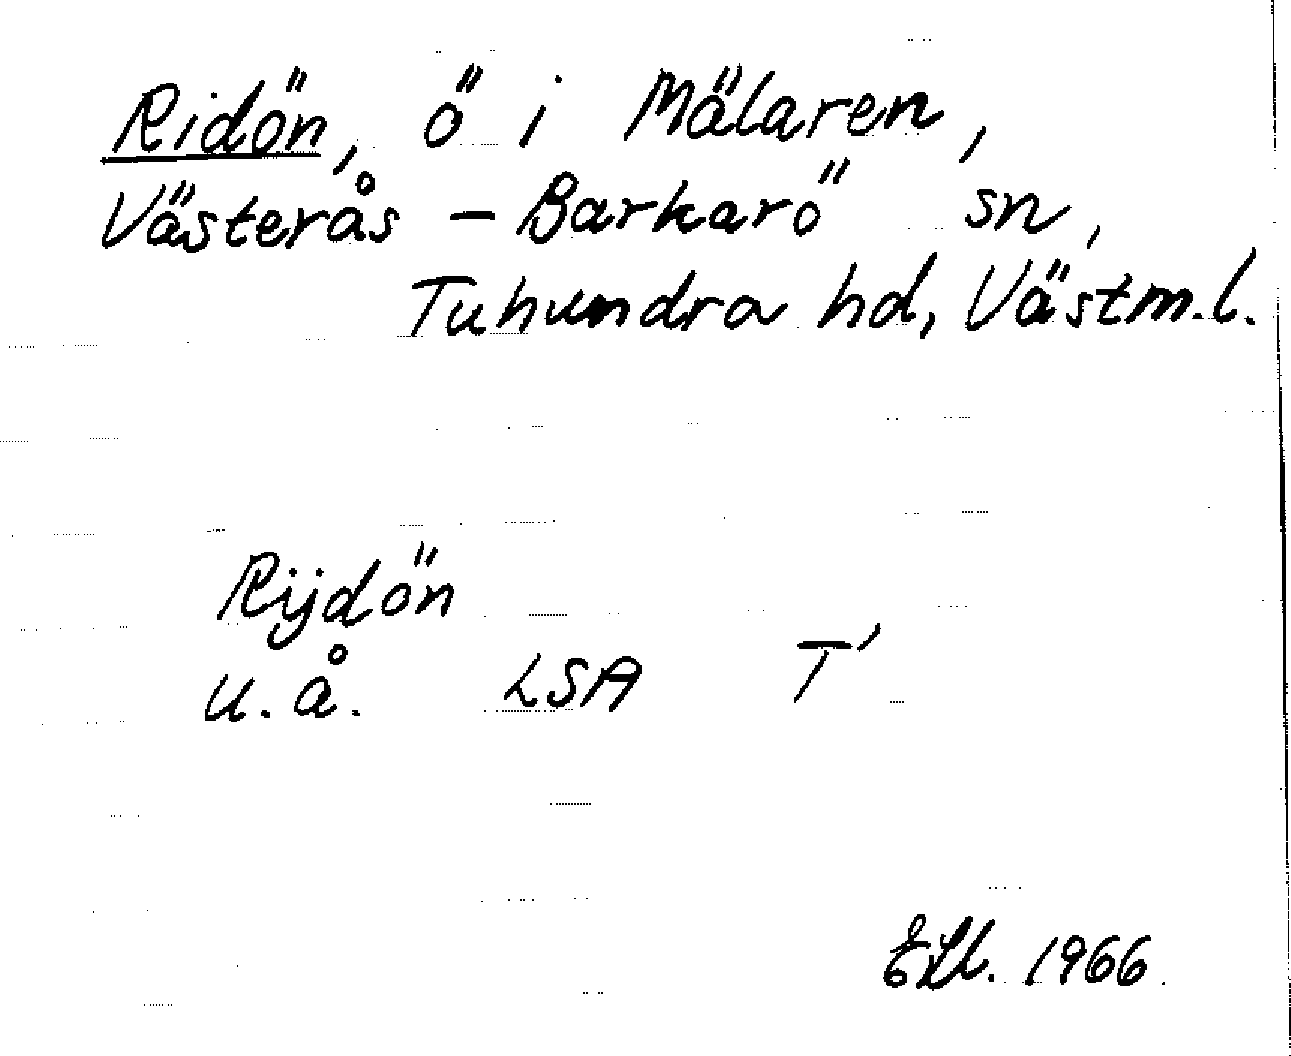 Ridön, ö i Mälaren,
Västerås - Barkarö sn,
Tuhundra hd, Västm.l.
Rijdön
u.å. LSA T'
1966